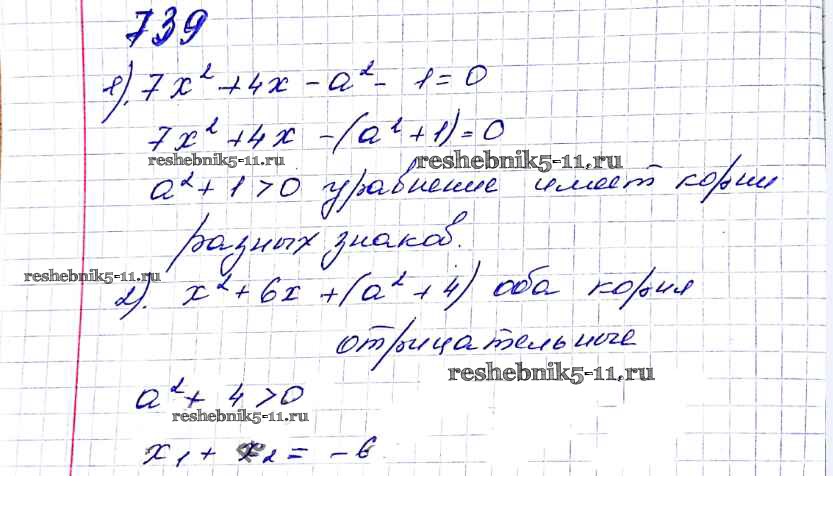 739
1). 7x² + 4x - a² - 1 = 0
7x² + 4x - (a² + 1) = 0
reshebnik5-11.ru reshebnik5-11.ru
a² + 1 > 0 уравнение имеет корни
разных знаков.
reshebnik5-11.ru
2). x² + 6x + (a² + 4) оба корня
отрицательные
reshebnik5-11.ru
a² + 4 > 0
reshebnik5-11.ru
x₁ + x₂ = -6